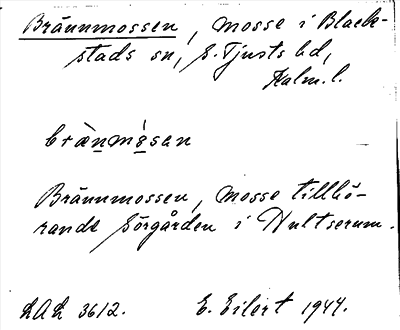 Brännmossen, mosse i Black-
stads sn, S. Tjusts hd,
Kalm. l.
brὰn̲mò̲san
Brännmossen, mosse tillhö-
rande Sörgården i Hultserum.
LAL 3612. E. Eilert 1944.